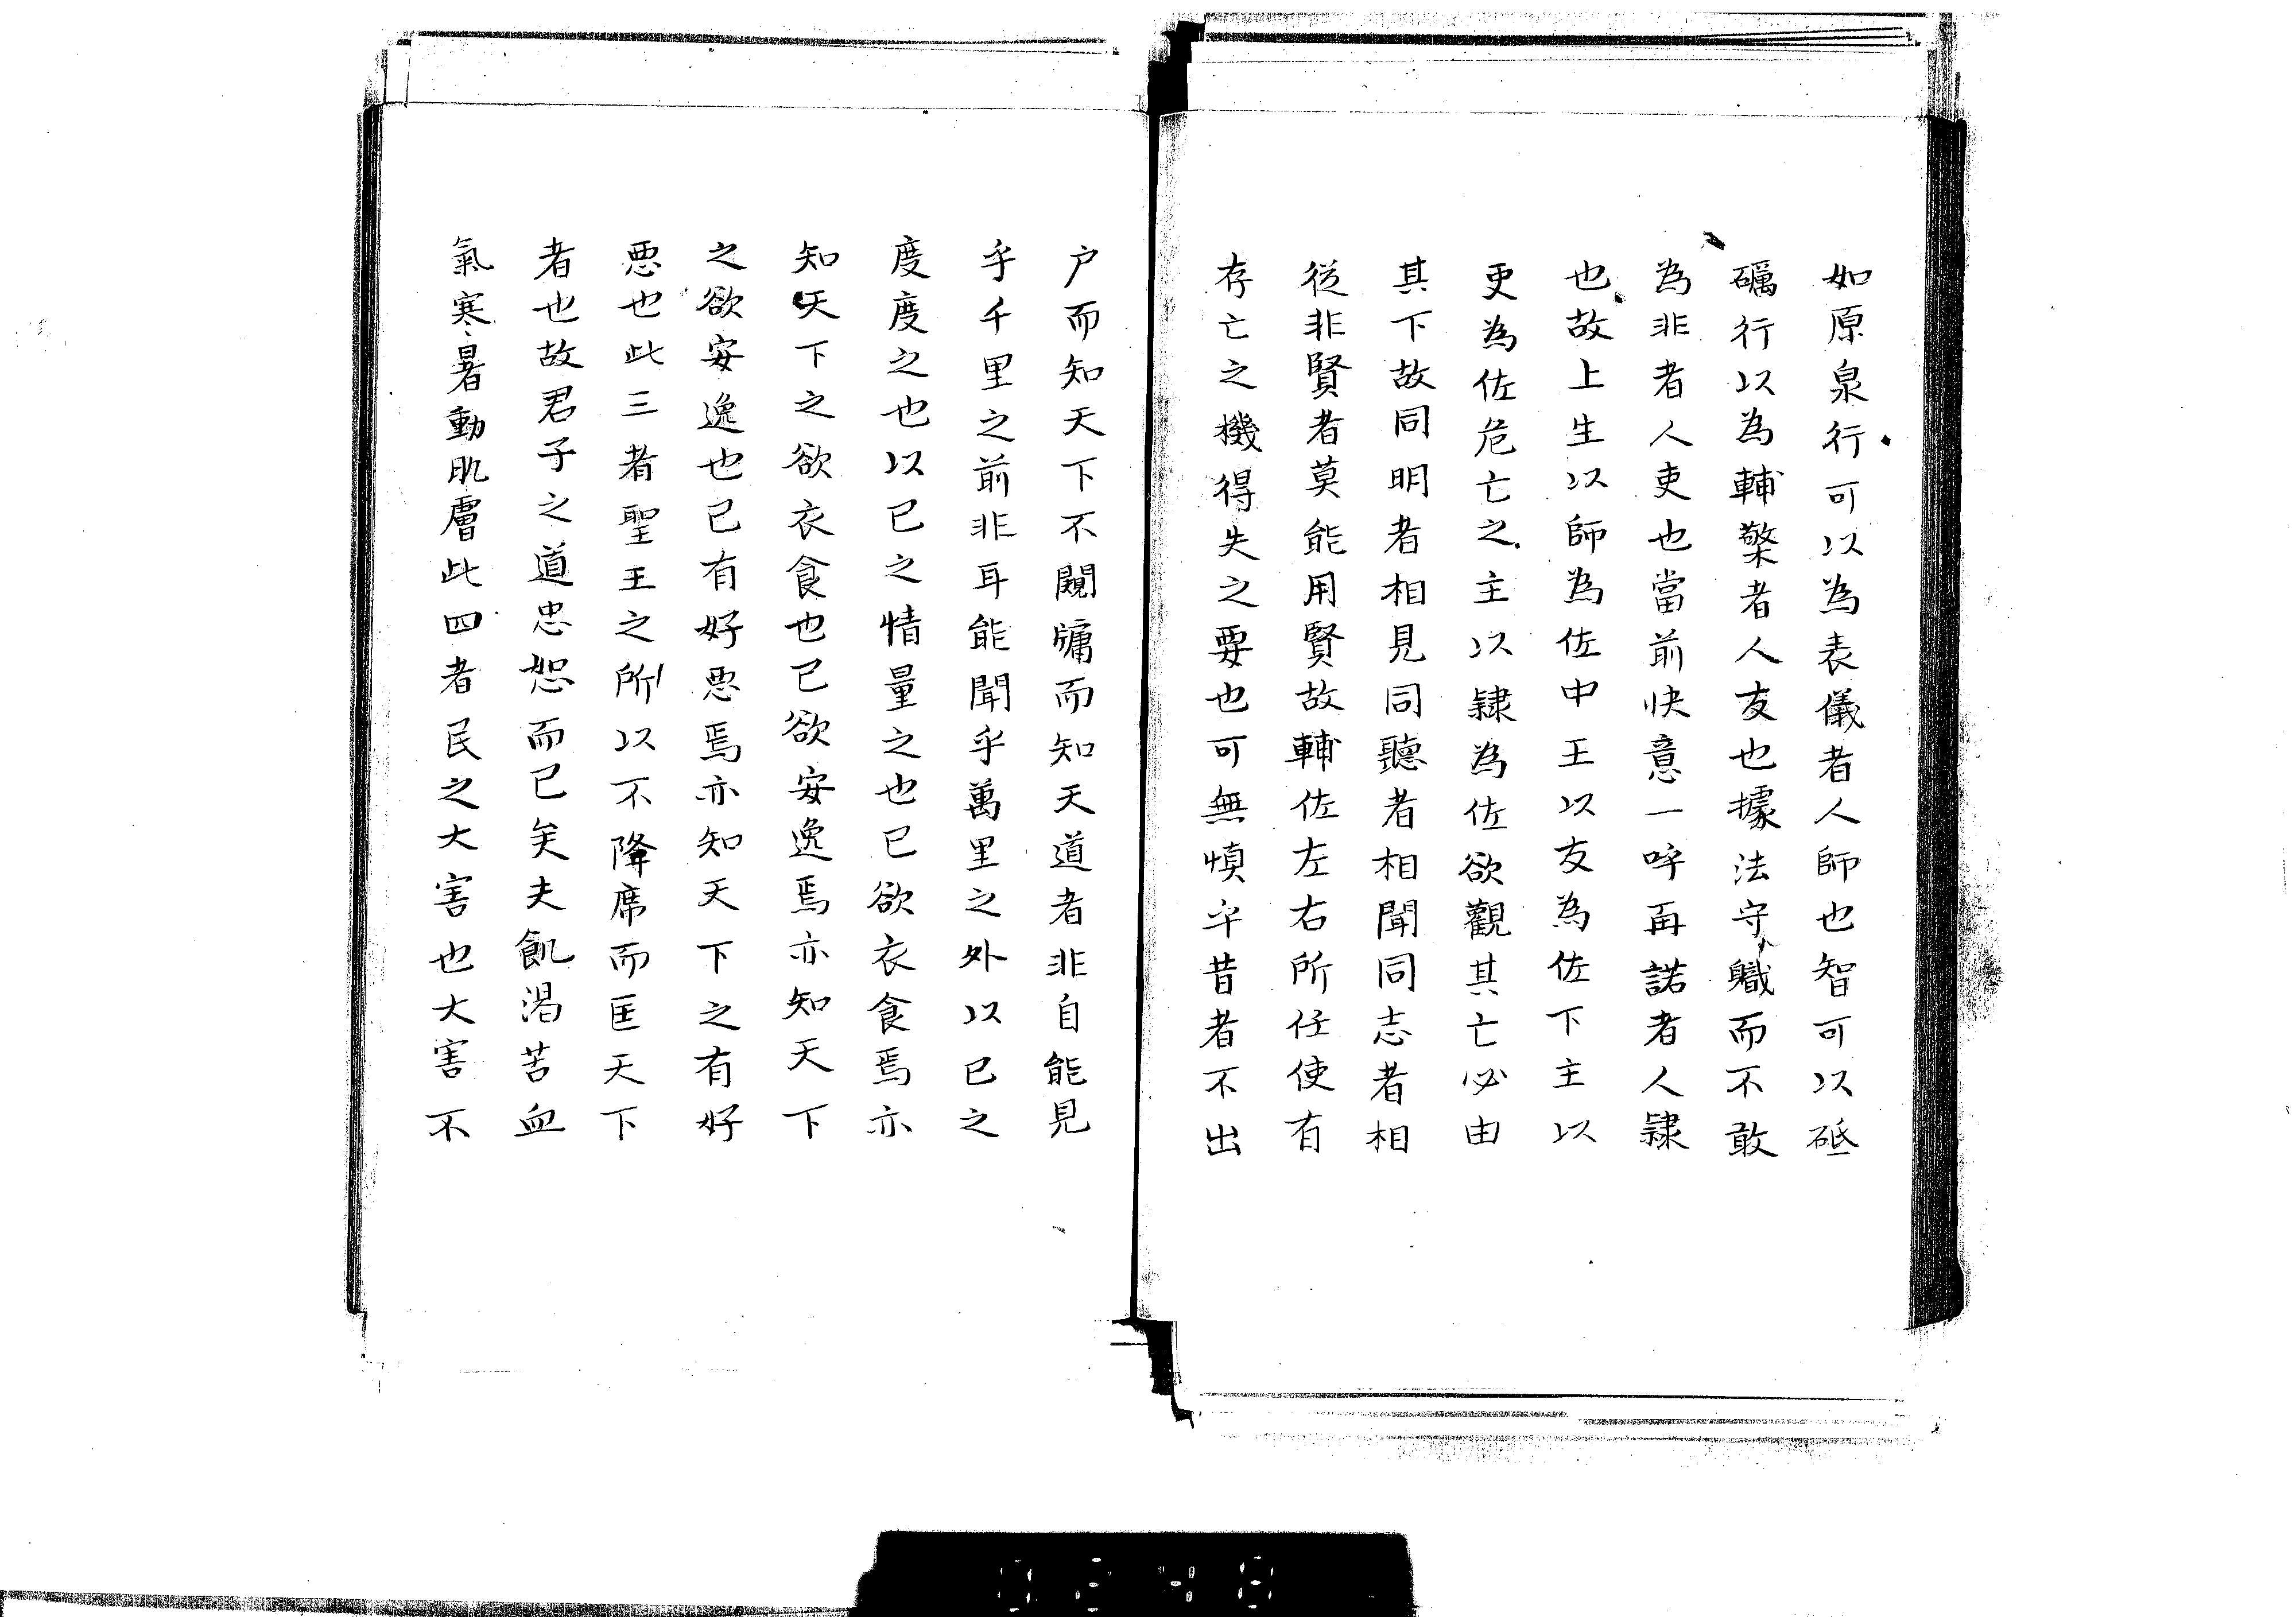 如原泉行可以為表儀者人師也智可以砥
礪行以為輔檠者人友也據法守職而不敢
為非者人吏也當前快意一呼再諾者人隸
也故上主以師為佐中王以友為佐下主以
吏為佐危亡之主以隸為佐欲觀其亡必由
其下故同明者相見同聽者相聞同志者相
從非賢者莫能用賢故輔佐左右所任使有
存亡之機得失之要也可無慎乎昔者不出
户而知天下不闚牖而知天道者非自能見
乎千里之前非耳能聞乎萬里之外以已之
度度之也以已之情量之也已欲衣食焉亦
知天下之欲衣食也已欲安逸焉亦知天下
之欲安逸也已有好悪焉亦知天下之有好
悪也此三者聖王之所以不降席而匡天下
者也故君子之道忠恕而已矣夫飢渇苦血
氣寒暑動肌膚此四者民之大害也大害不